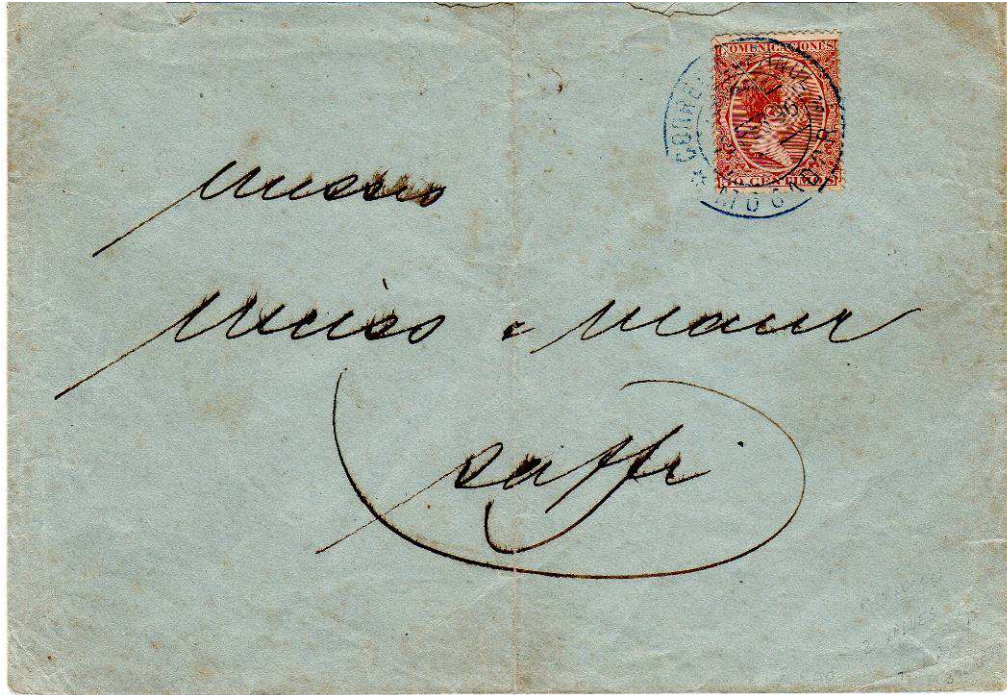 COMUNICACIONES
CENTIMOS
MOGADOR
Messrs
Weiss & Maur
Saffi